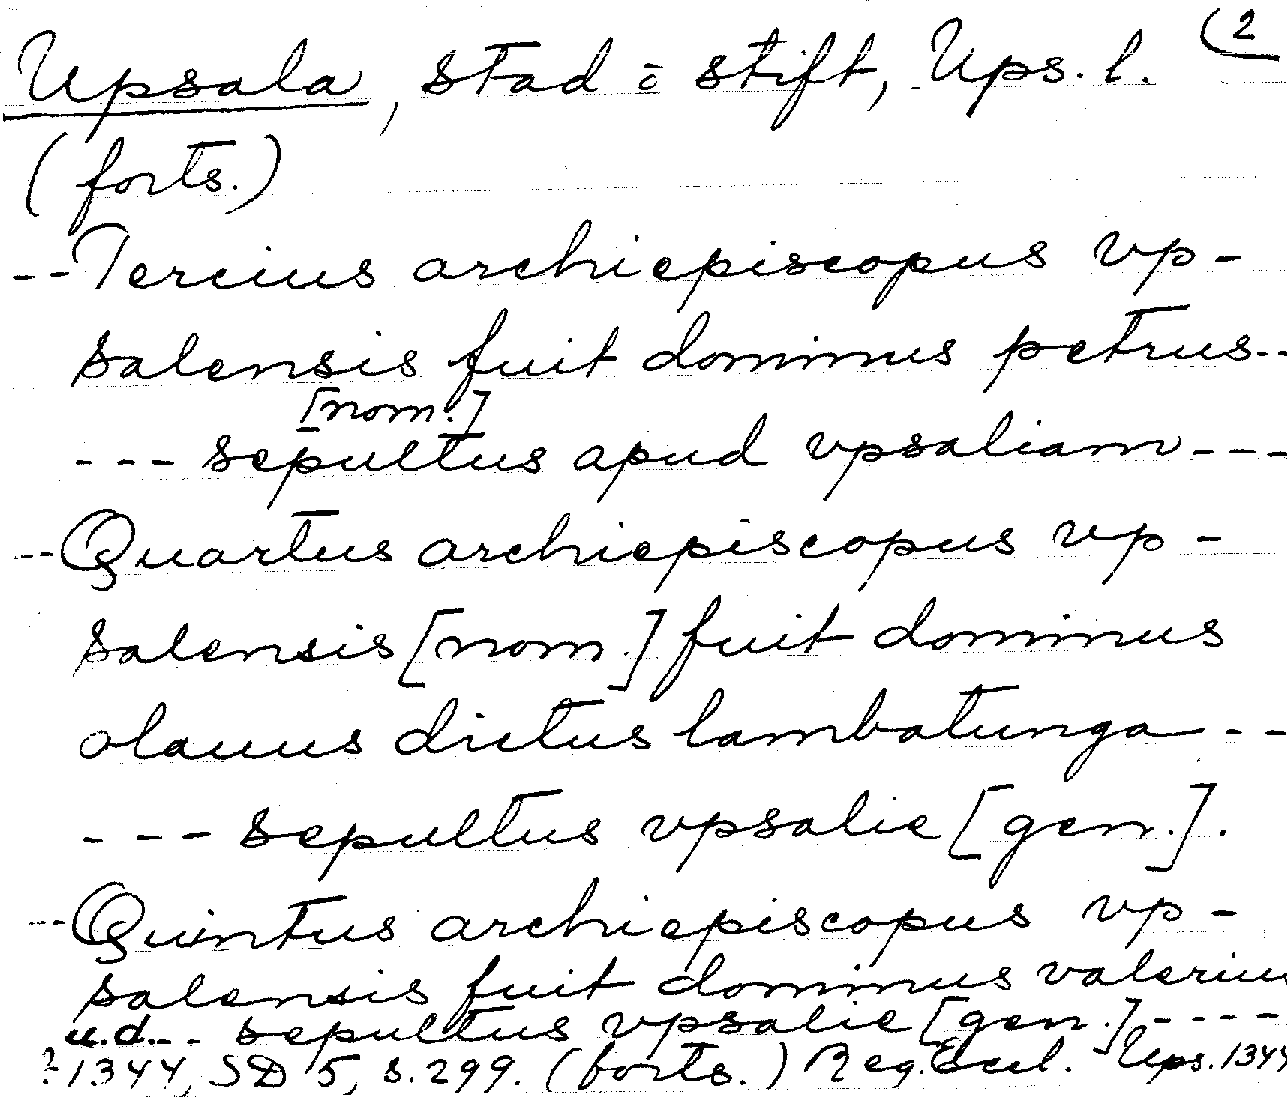 Upsala, stad o stift, Ups. l. (2
(forts.)
-- Tercius archiepiscopus vp-
salensis fuit dominus petrus --
[nom.]
--- sepultus apud vpsaliam ---
-- Quartus archiepiscopus vp-
salensis [nom.] fuit dominus
olauus dictus lambatunga --
--- sepultus vpsalie [gen.].
-- Quintus archiepiscopus vp-
salensis fuit dominus valerius
u.d. -- sepultus vpsalie [gen.] ----
? 1344, SD 5, s. 299. (forts.) Reg. Eccl. Ups. 1344